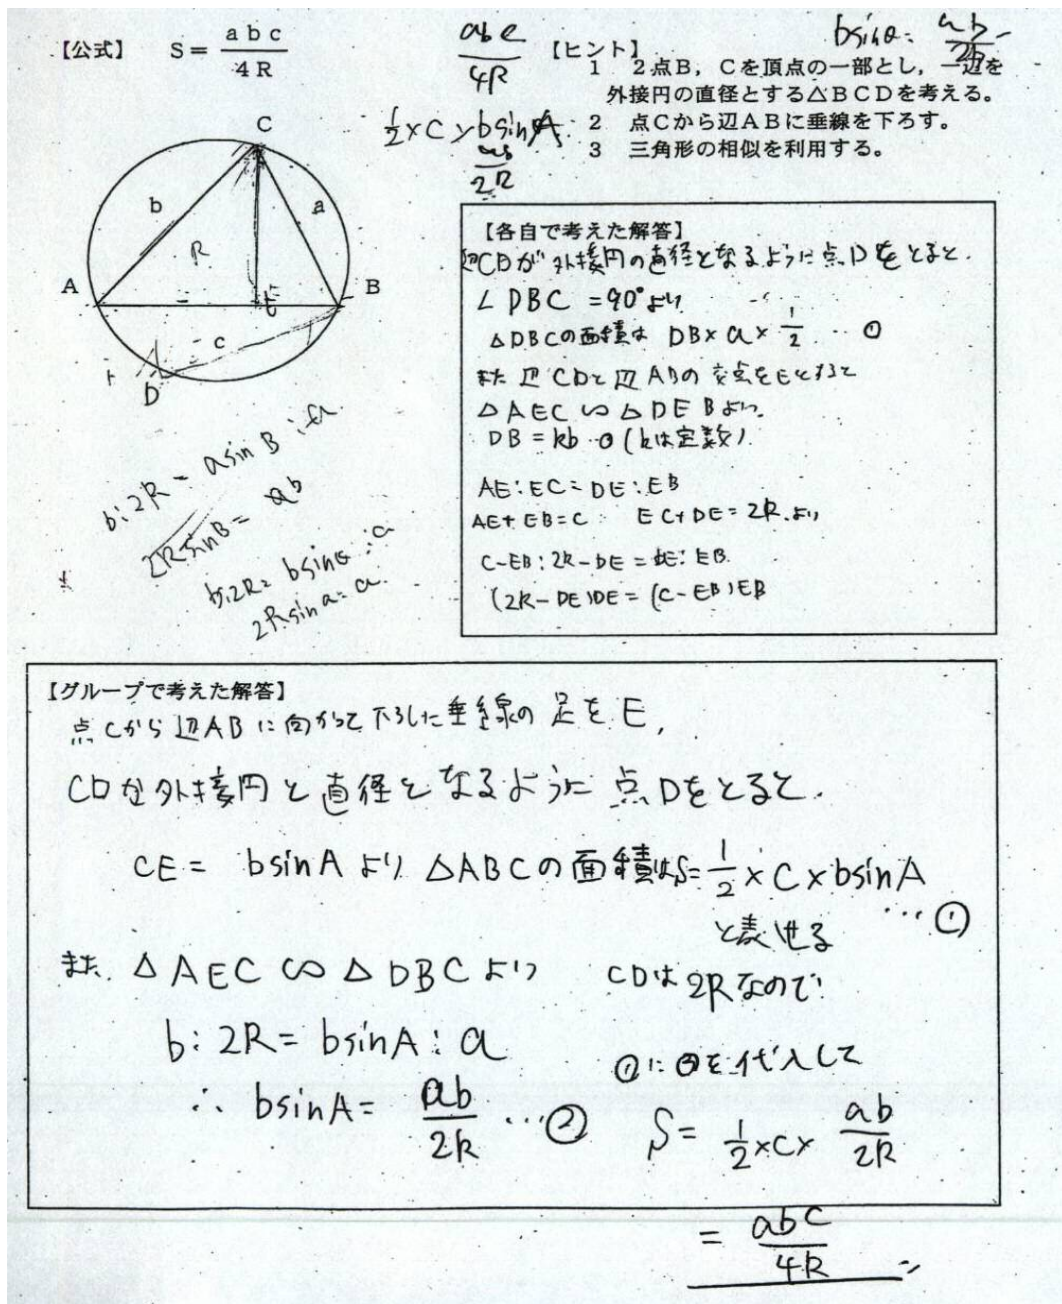 【公式】 S = abc / 4R
abc / 4R
bsinθ = ab / 2R
【ヒント】
1 2点B，Cを頂点の一部とし，一辺を
外接円の直径とする△BCDを考える。
2 点Cから辺ABに垂線を下ろす。
3 三角形の相似を利用する。
1/2 × C × bsinA
ab / 2R
C
b
a
R
A
B
E
c
D
b:2R = asinB : a
2RsinB = ab
b:2R = bsinθ : a
2Rsina = a
【各自で考えた解答】
辺CDが外接円の直径となるように点Dをとると.
∠DBC = 90°より
△DBCの面積は DB × a × 1/2 … ①
また 辺CDと辺ABの交点をEとすると
△AEC ∽ △DEBより.
DB = kb … ② (kは定数)
AE:EC = DE:EB
AE+EB=C EC+DE=2R より
C-EB : 2R-DE = DE : EB
(2R-DE)DE = (C-EB)EB
【グループで考えた解答】
点Cから辺ABに向かって下ろした垂線の足をE,
CDが外接円と直径となるように 点Dをとると.
CE = bsinA より △ABCの面積はS = 1/2 × C × bsinA
… ①
と表せる
また. △AEC ∽ △DBC より
CDは2Rなので
b : 2R = bsinA : a
①に②を代入して
∴ bsinA = ab / 2R … ②
S = 1/2 × C × ab / 2R
= abc / 4R